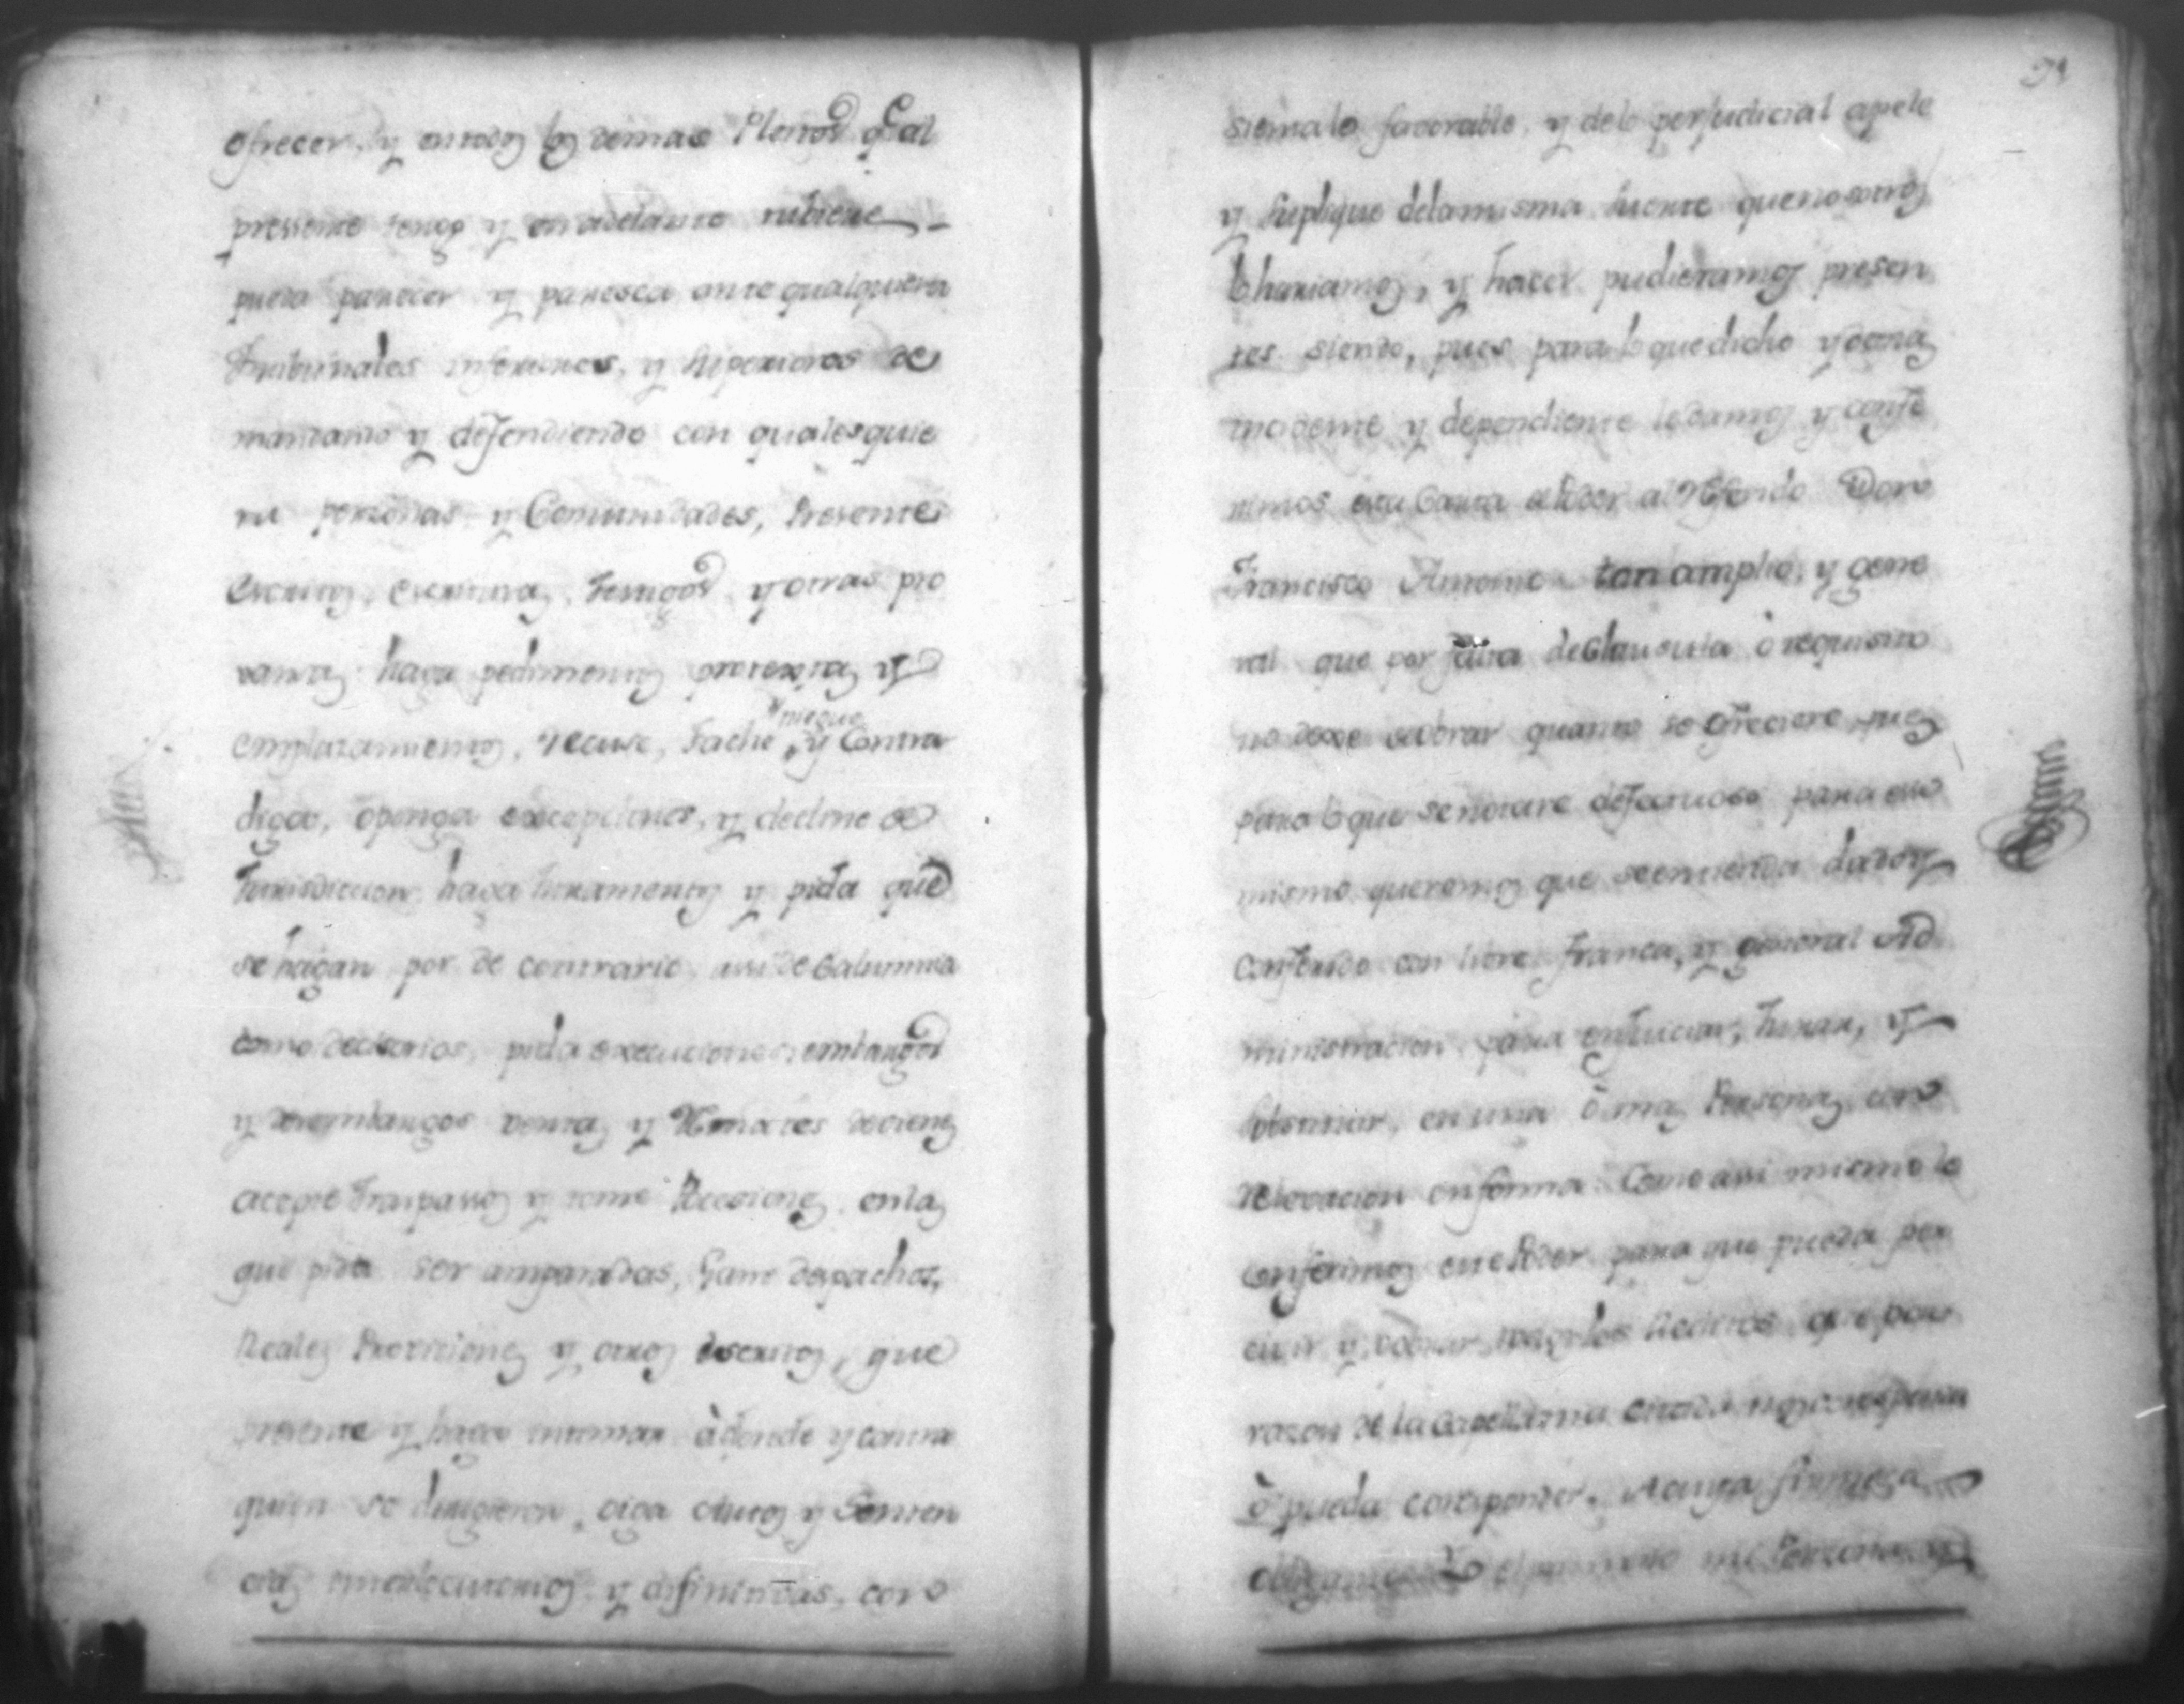 ofrecer, y en todos los demas Pleitos q.e al
presente tengo y en adelante tubiere
pueda parecer y paresca ante qualquiera
Tribunales inferiores, y superiores de
mandando y defendiendo con qualesquie
ra personas y Comunidades, Presente
Escritos, escrituras, testigos, y otras pro
vanzas haga pedimentos protextas y
emplazamientos, recuse, tache y niegue y Contra
diga, oponga excepciones, y decline de
Jurisdiccion haga Juramentos y pida que
se hagan por de contrario, assi de Calumnia
como decisorios, pida execuciones embargos
y desembargos ventas y Remates de vienes
acepte traspassos y tome Posesiones en las
que pida ser amparadas, Gane despachos,
Reales Provisiones y otros escritos, que
presente y haga intimar à donde y contra
quien se dirigieren, oiga Autos y Senten
cias interlocutorios y difinitivas, con
sienta lo favorable, y de lo perjudicial apele
y Suplique de la misma suerte que nosotros
lo hariamos, y hacer pudieramos presen
tes siendo, pues para lo que dicho y otras
incidente y dependiente le damos y confe
rimos esta Carta de Poder al Referido Don
Francisco Antonio tan amplio, y gene
ral que por falta de Clausula ò requisito
no dexe de obrar quanto se ofreciere, pues
para lo que se notare defectuoso para esso
mismo queremos que se entienda dado y
Conferido con livre, franca, y general Ad
ministracion para enjuiciar, Jurar, y
sobstituir, en una ò mas Personas, con
relevacion en forma. Como assi mismo le
Conferimos este Poder para que pueda per
civir y cobrar todos los Reditos que por
razon de la Capellania citada nos corresponda
ò pueda corresponder. A cuya firmeza
obligamos Yo el primero mi Persona y